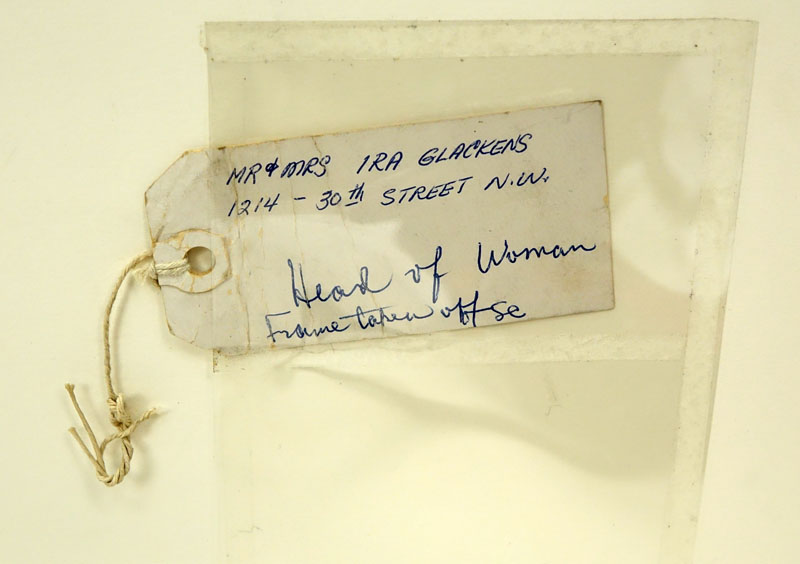 MR & MRS IRA GLACKENS
1214 - 30th STREET N.W.
Head of Woman
Frame taken off sc